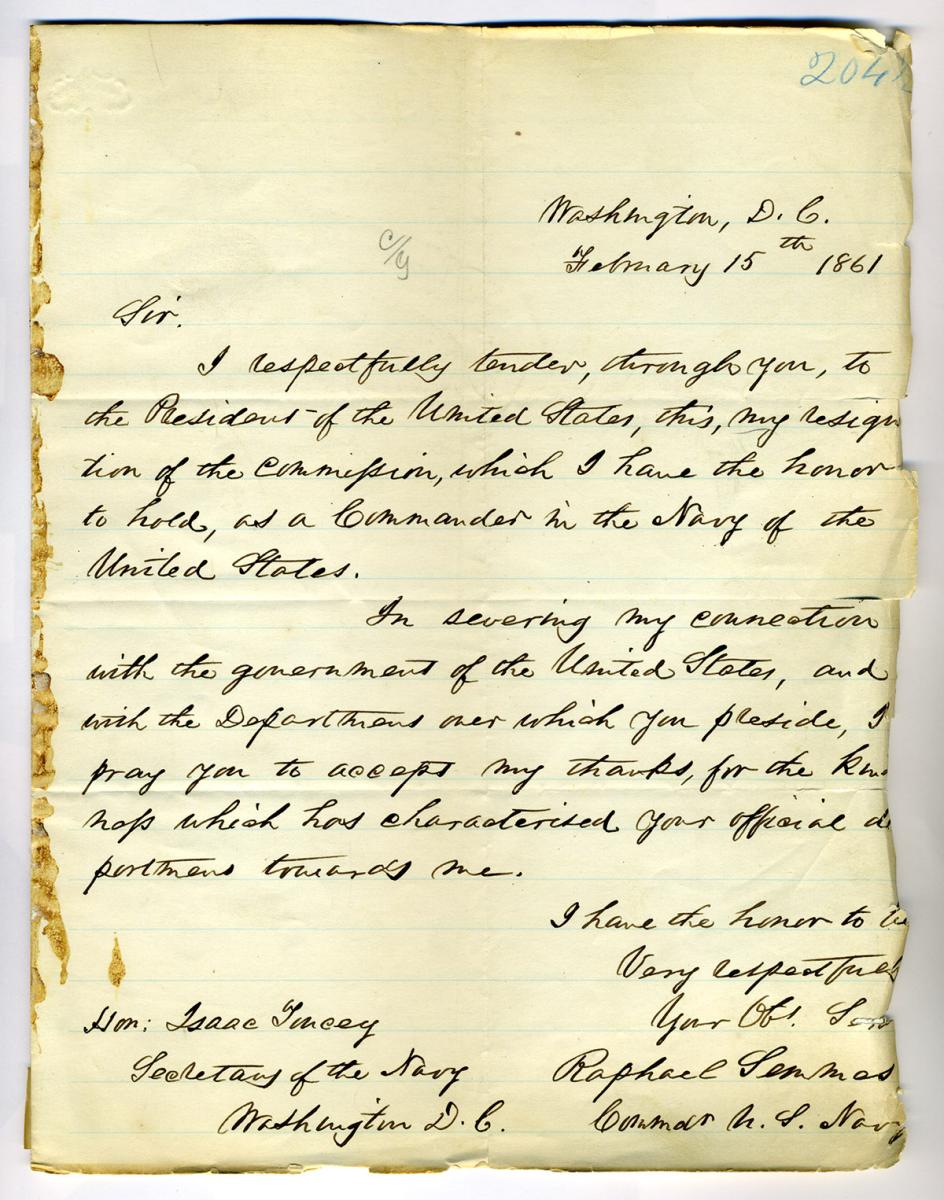 204
Washington, D. C.
February 15th 1861
C/y
Sir.
I respectfully tender, through you, to
the President of the United States, this, my resign
tion of the Commission, which I have the honor
to hold, as a Commander in the Navy of the
United States.
In severing my connection
with the government of the United States, and
with the Department over which you preside, I
pray you to accept my thanks, for the kind
ness which has characterised your official de
portment towards me.
I have the honor to be
Very respectfully
Your Obt. Serv
Hon: Isaac Toucey
Secretary of the Navy
Washington D. C.
Raphael Semmes
Commdr U. S. Navy